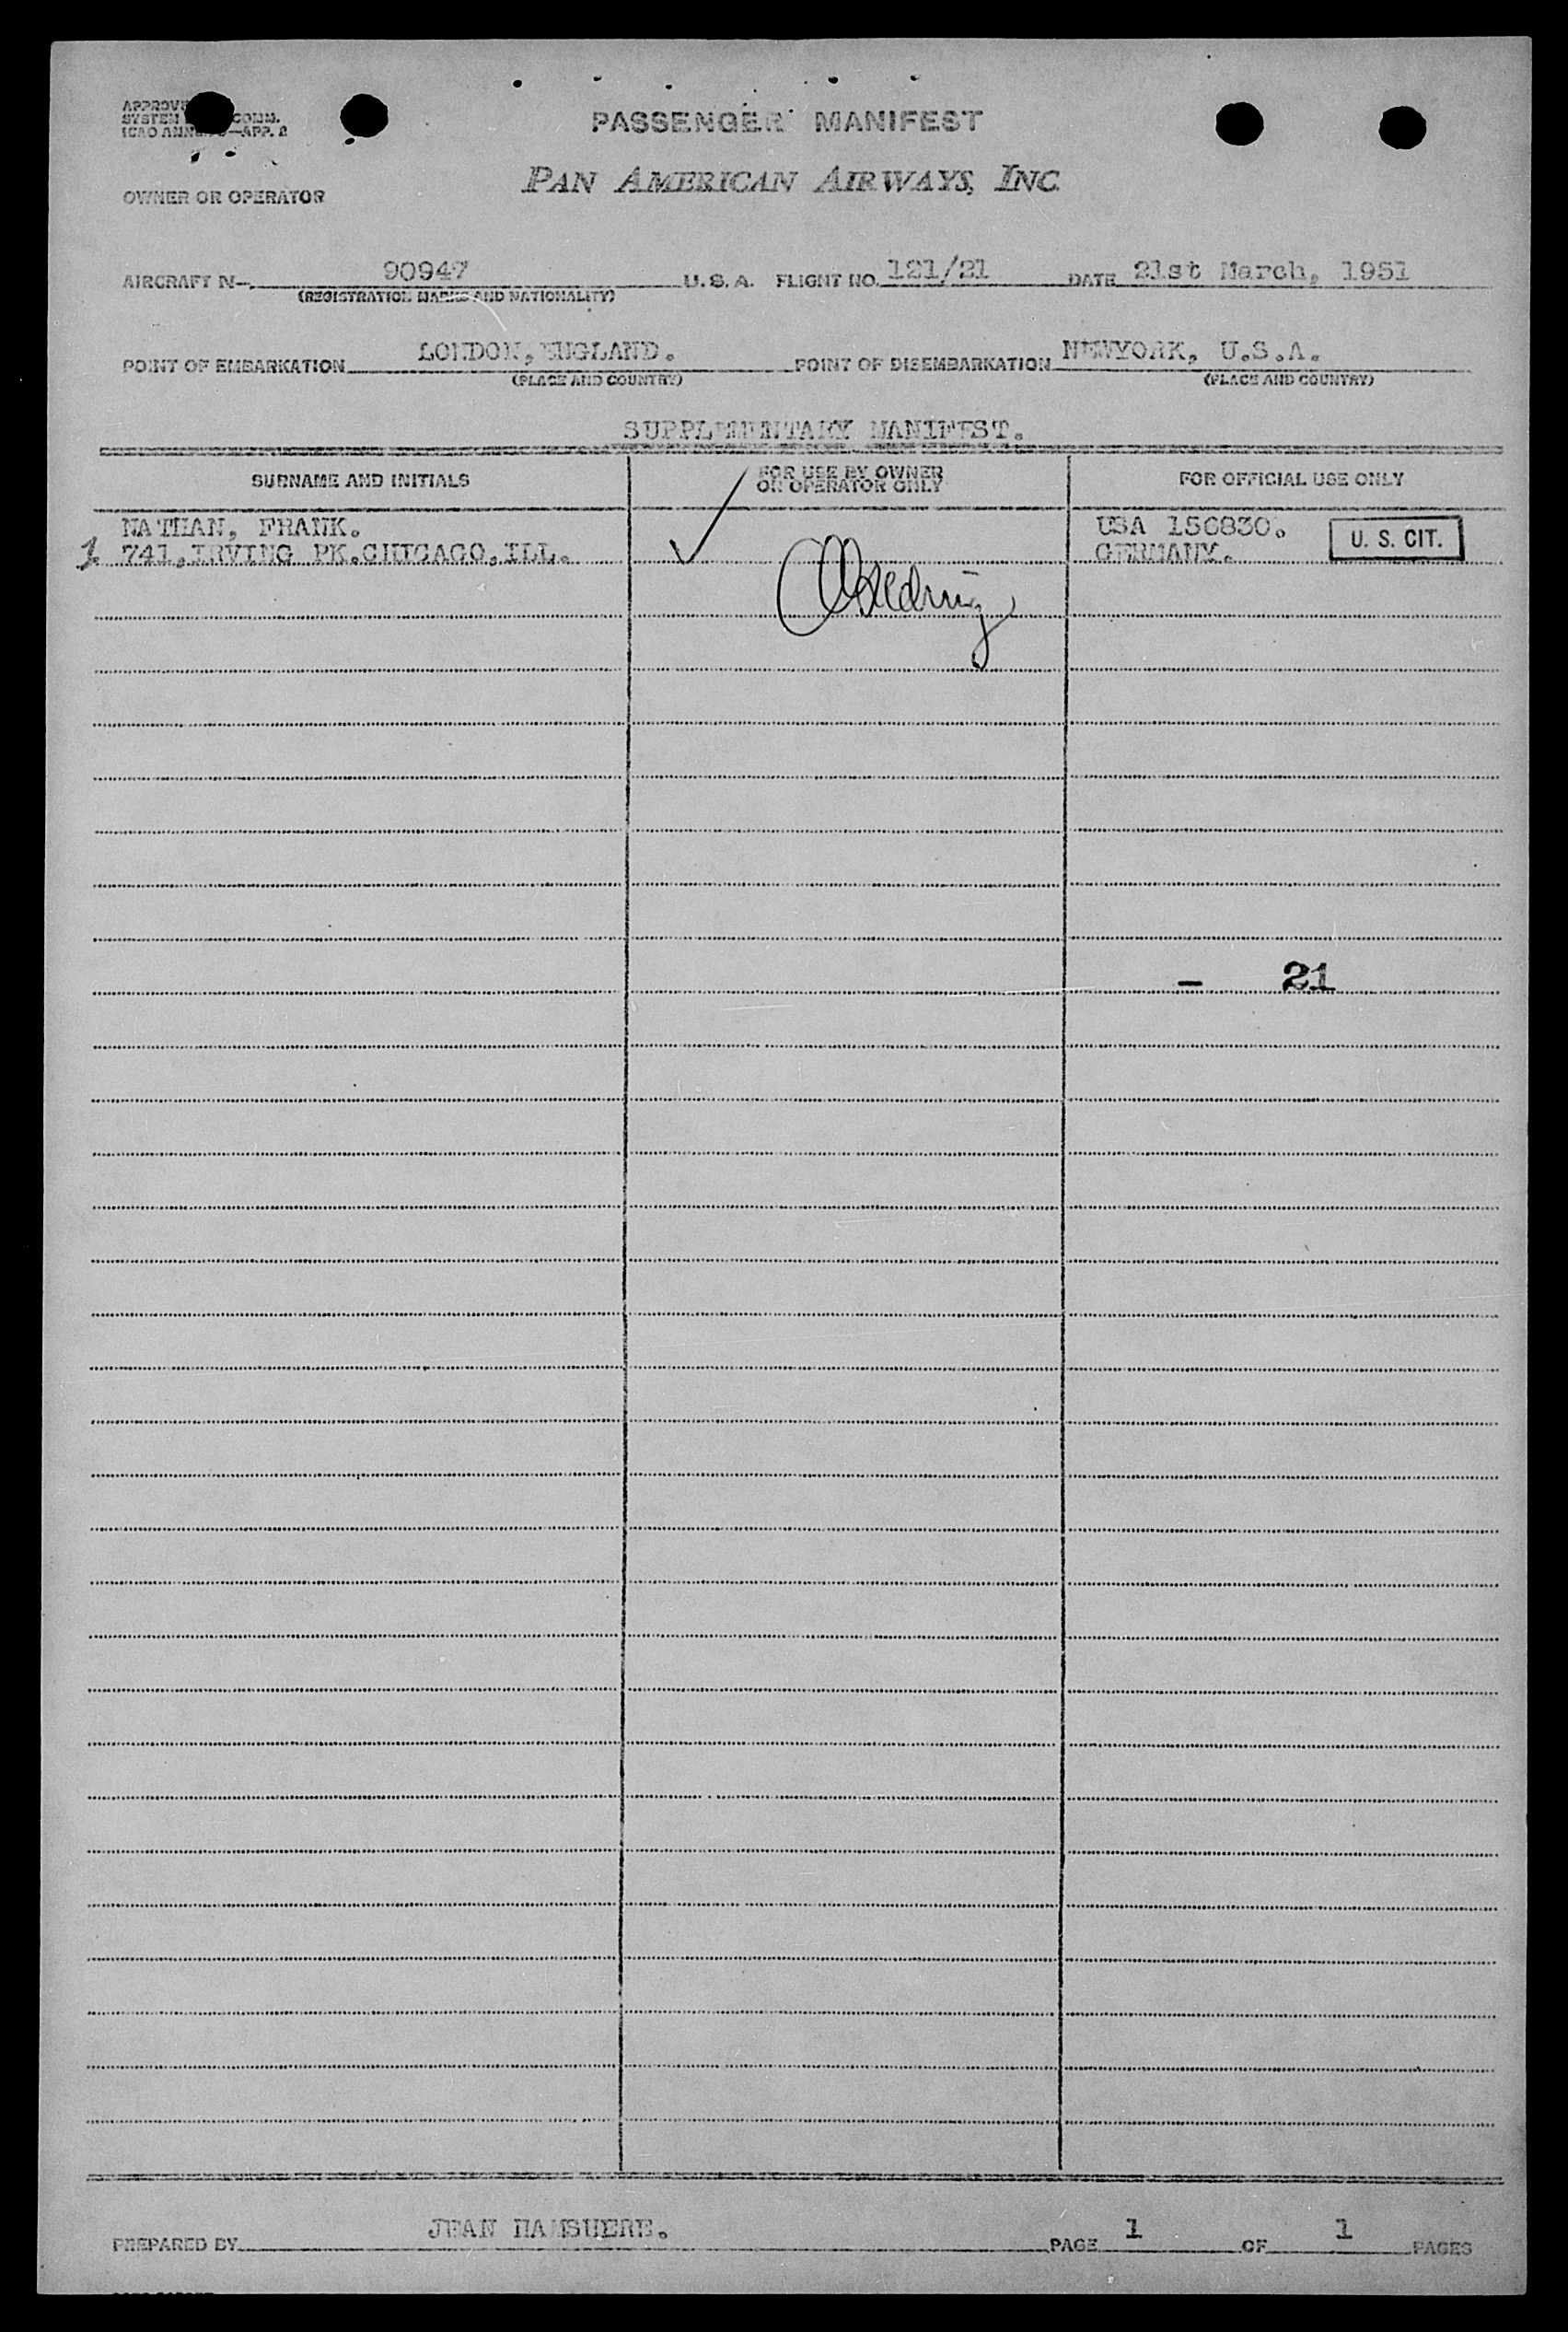 PASSENGER MANIFEST
PAN AMERICAN AIRWAYS, INC
OWNER OR OPERATOR
AIRCRAFT N-. 90947 U.S.A. FLIGHT NO. 121/21 DATE 21st March, 1951
(REGISTRATION MARKS AND NATIONALITY)
POINT OF EMBARKATION LONDON, ENGLAND. POINT OF DISEMBARKATION NEWYORK, U.S.A.
(PLACE AND COUNTRY) (PLACE AND COUNTRY)
SUPPLEMENTARY MANIFEST.
SURNAME AND INITIALS FOR USE BY OWNER OR OPERATOR ONLY FOR OFFICIAL USE ONLY
NATHAN, FRANK. USA 150830.
1 741, IRVING PK. CHICAGO, ILL. GERMANY. U. S. CIT.
- 21
PREPARED BY JEAN PAGE 1 OF 1 PAGES